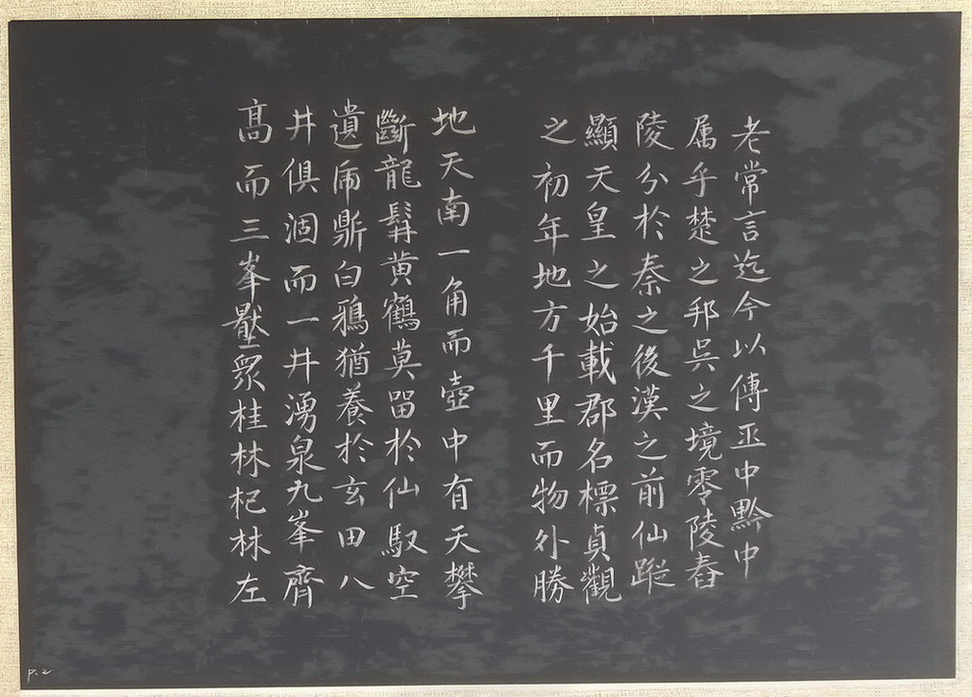 老常言迄今以傳巫中黔中
属乎楚之邦吳之境零陵舂
陵分於秦之後漢之前仙蹤
顯天皇之始載郡名標貞觀
之初年地方千里而物外勝
地天南一角而壺中有天攀
斷龍髯黄鶴莫留於仙馭空
遺鼎白鴉猶養於玄田八
井俱涸而一井湧泉九峯齊
高而三峯壓眾桂林杞林左
P.2